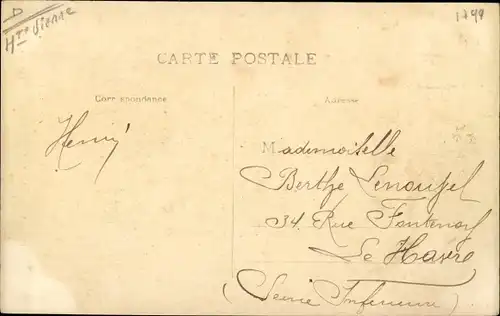 D
Hte Vienne
1744
CARTE POSTALE
Correspondance
Adresse
Henri
Mademoiselle
Berthe Lenoufel
34 Rue Fontenoy
Le Havre
(Seine Inferieure)